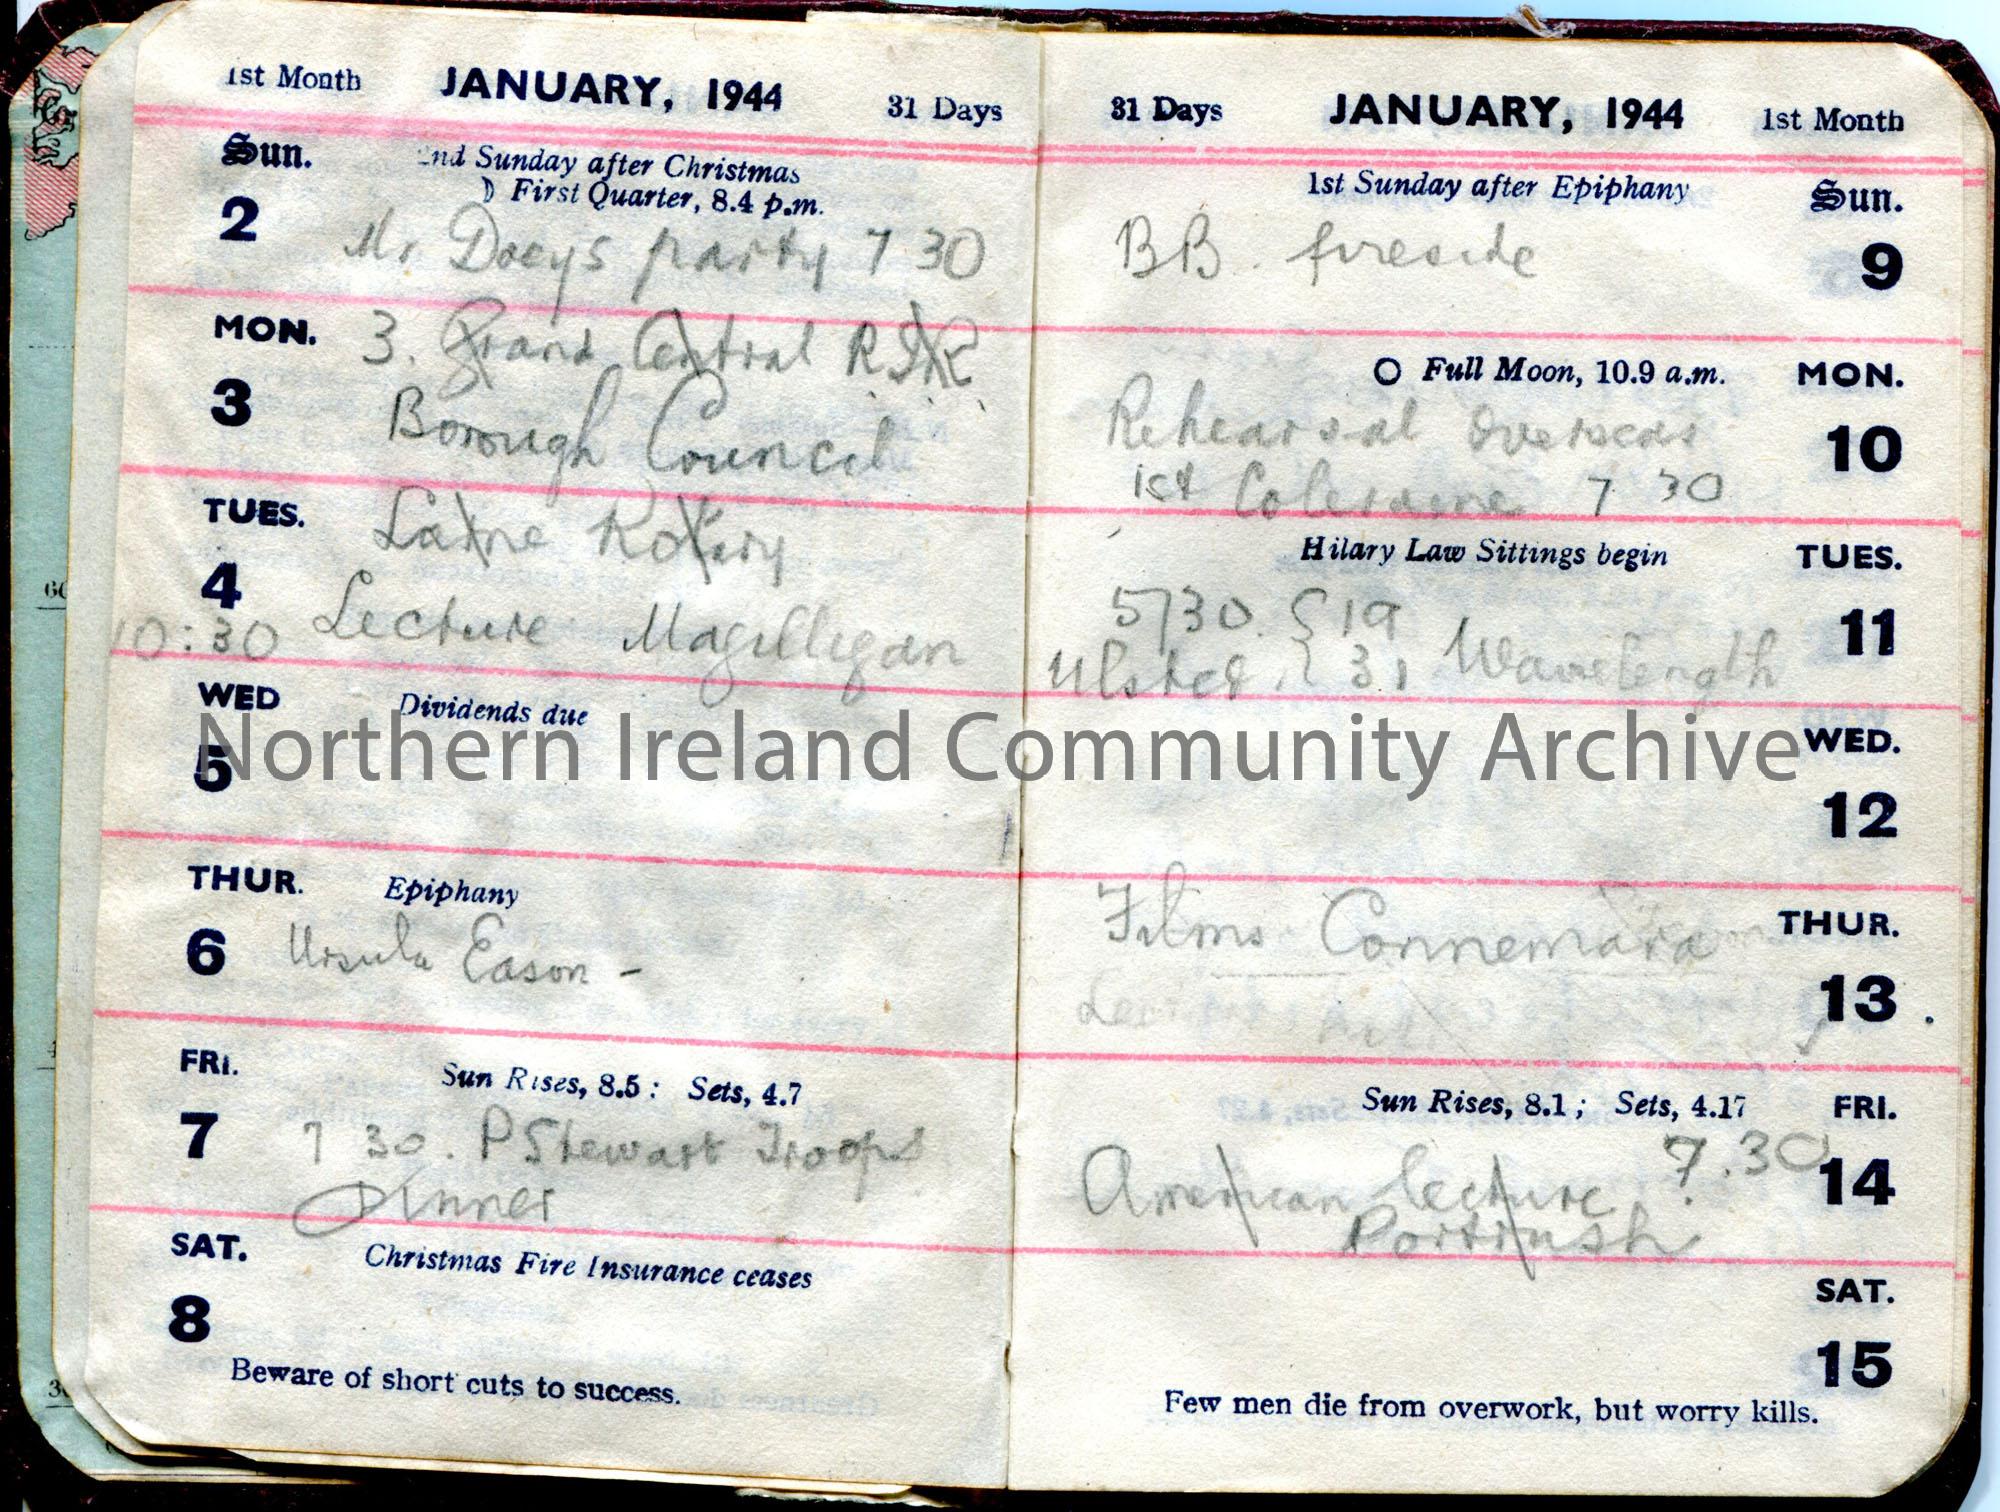 1st Month JANUARY, 1944 31 Days
Sun. 2nd Sunday after Christmas
First Quarter, 8.4 p.m.
2 Mr Doeys party 7 30
MON. 3. Grand Central
3 Borough Council
TUES. Larne Rotary
4
10:30 Lecture Magilligan
WED Dividends due
5
THUR. Epiphany
6 Ursula Eason -
FRI. Sun Rises, 8.5 : Sets, 4.7
7 7 30. P Stewart Troops
Dinner
SAT. Christmas Fire Insurance ceases
8
Beware of short cuts to success.
31 Days JANUARY, 1944 1st Month
1st Sunday after Epiphany Sun.
BB. fireside 9
Full Moon, 10.9 a.m. MON.
Rehearsal Overseas 10
1st Coleraine 7 30
Hilary Law Sittings begin TUES.
5/30 19 11
31 Wavelength
WED.
12
Films Connemara THUR.
13
Sun Rises, 8.1 ; Sets, 4.17 FRI.
American lecture 7.30 14
Portrush
SAT.
15
Few men die from overwork, but worry kills.
Northern Ireland Community Archive